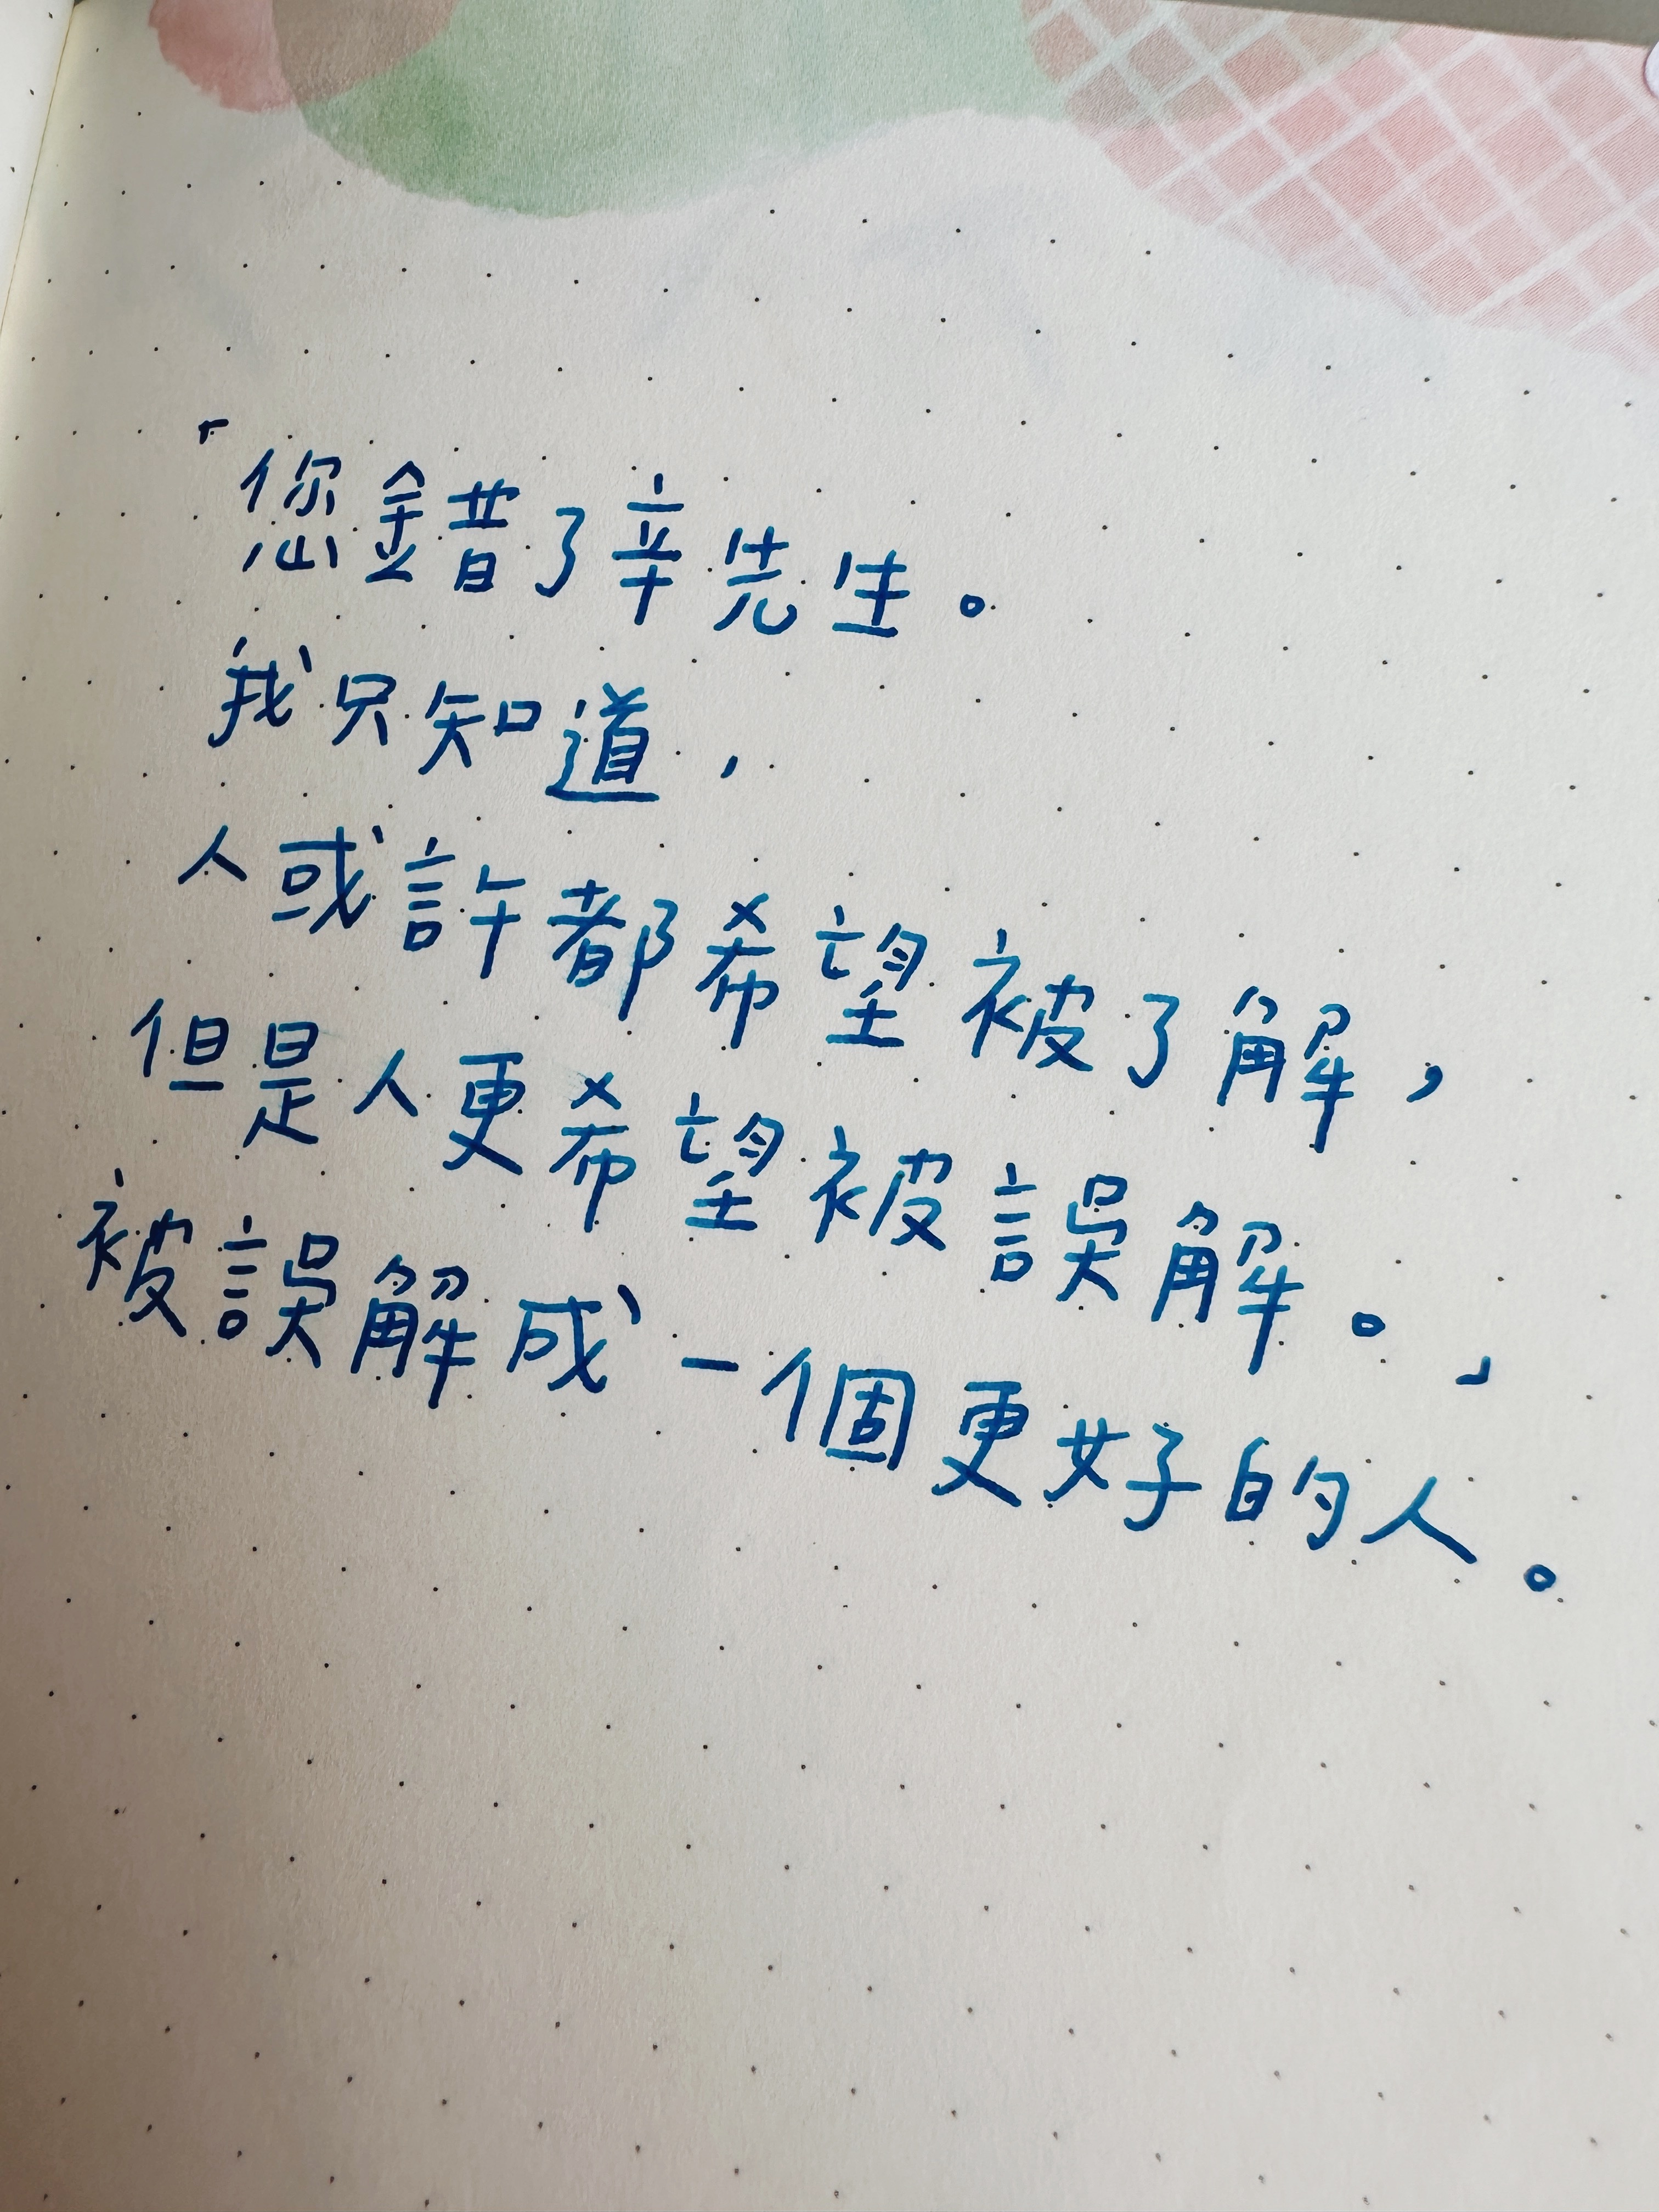 「您錯了辛先生。
我只知道，
人或許都希望被了解，
但是人更希望被誤解。」
被誤解成一個更好的人。